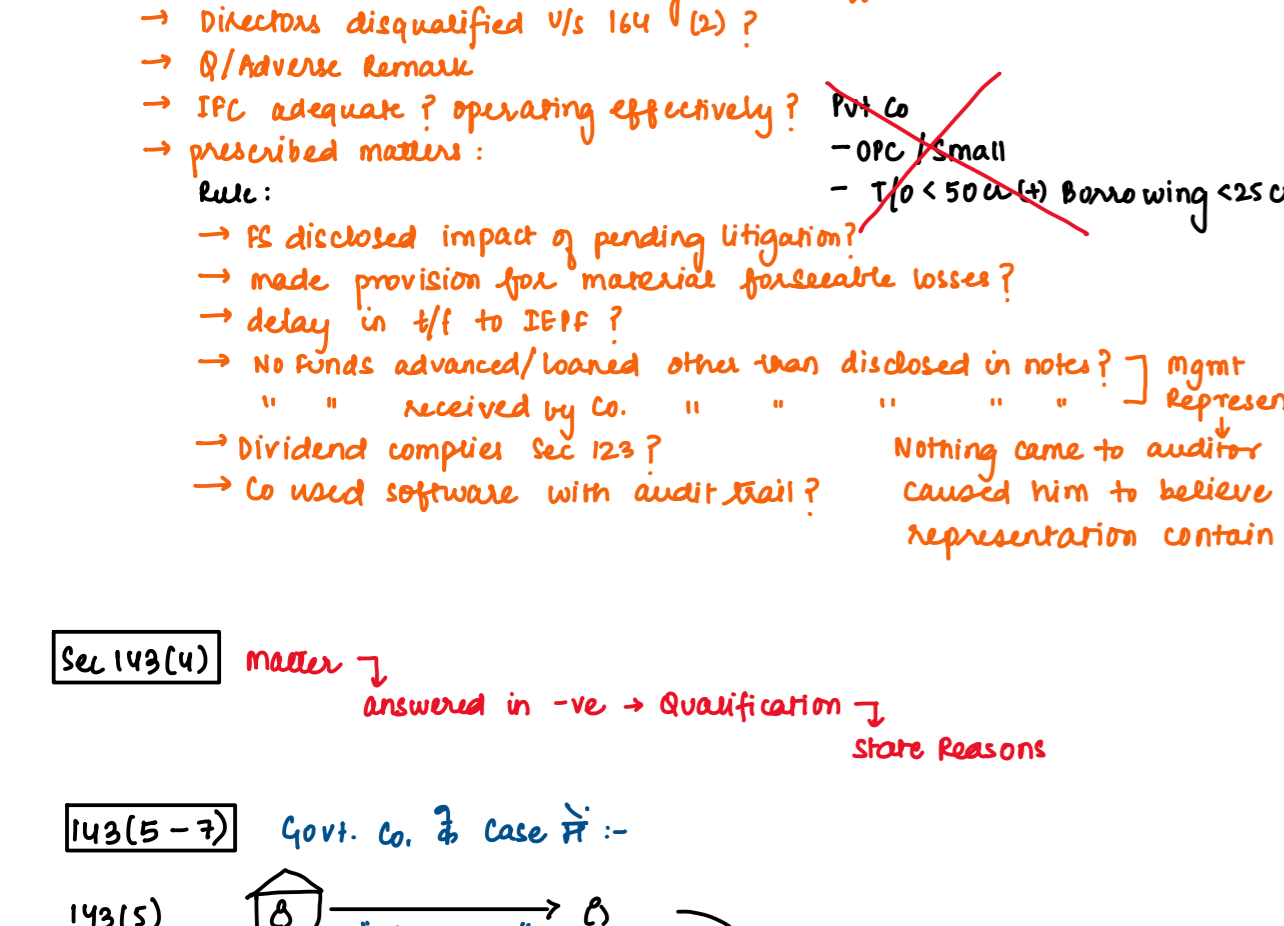 → Directors disqualified u/s 164 (2) ?
→ Q/Adverse Remark
→ IFC adequate ? operating effectively ? Pvt Co
→ prescribed matters : - OPC / Small
Rule : - T/o < 50 cr (+) Borrowing <25 c
→ FS disclosed impact of pending litigation?
→ made provision for material forseeable losses ?
→ delay in t/f to IEPF ?
→ No Funds advanced/loaned other than disclosed in notes ? Mgmt
" " received by Co. " " " " " Represen
→ Dividend complies Sec 123 ? Nothing came to auditor
→ Co used software with audit trail ? caused him to believe
representation contain
Sec 143(4) Matter
answered in -ve → Qualification
State Reasons
143(5-7) Govt. Co. के Case में :-
143(5)